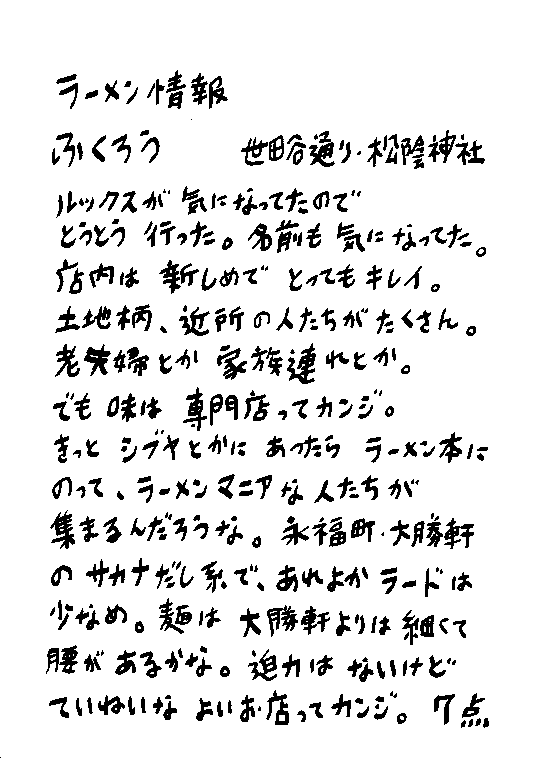 ラーメン情報
ふくろう 世田谷通り・松陰神社
ルックスが 気になってたので
とうとう 行った。名前も 気になってた。
店内は 新しめで とってもキレイ。
土地柄、近所の人たちがたくさん。
老夫婦とか 家族連れとか。
でも 味は 専門店ってカンジ。
きっと シブヤとかに あったら ラーメン本に
のって、ラーメンマニアな 人たちが
集まるんだろうな。永福町・大勝軒
の サカナだし系で、あれよか ラードは
少なめ。麺は 大勝軒よりは 細くて
腰が あるかな。迫力は ないけど
ていねいな よいお店ってカンジ。 7点